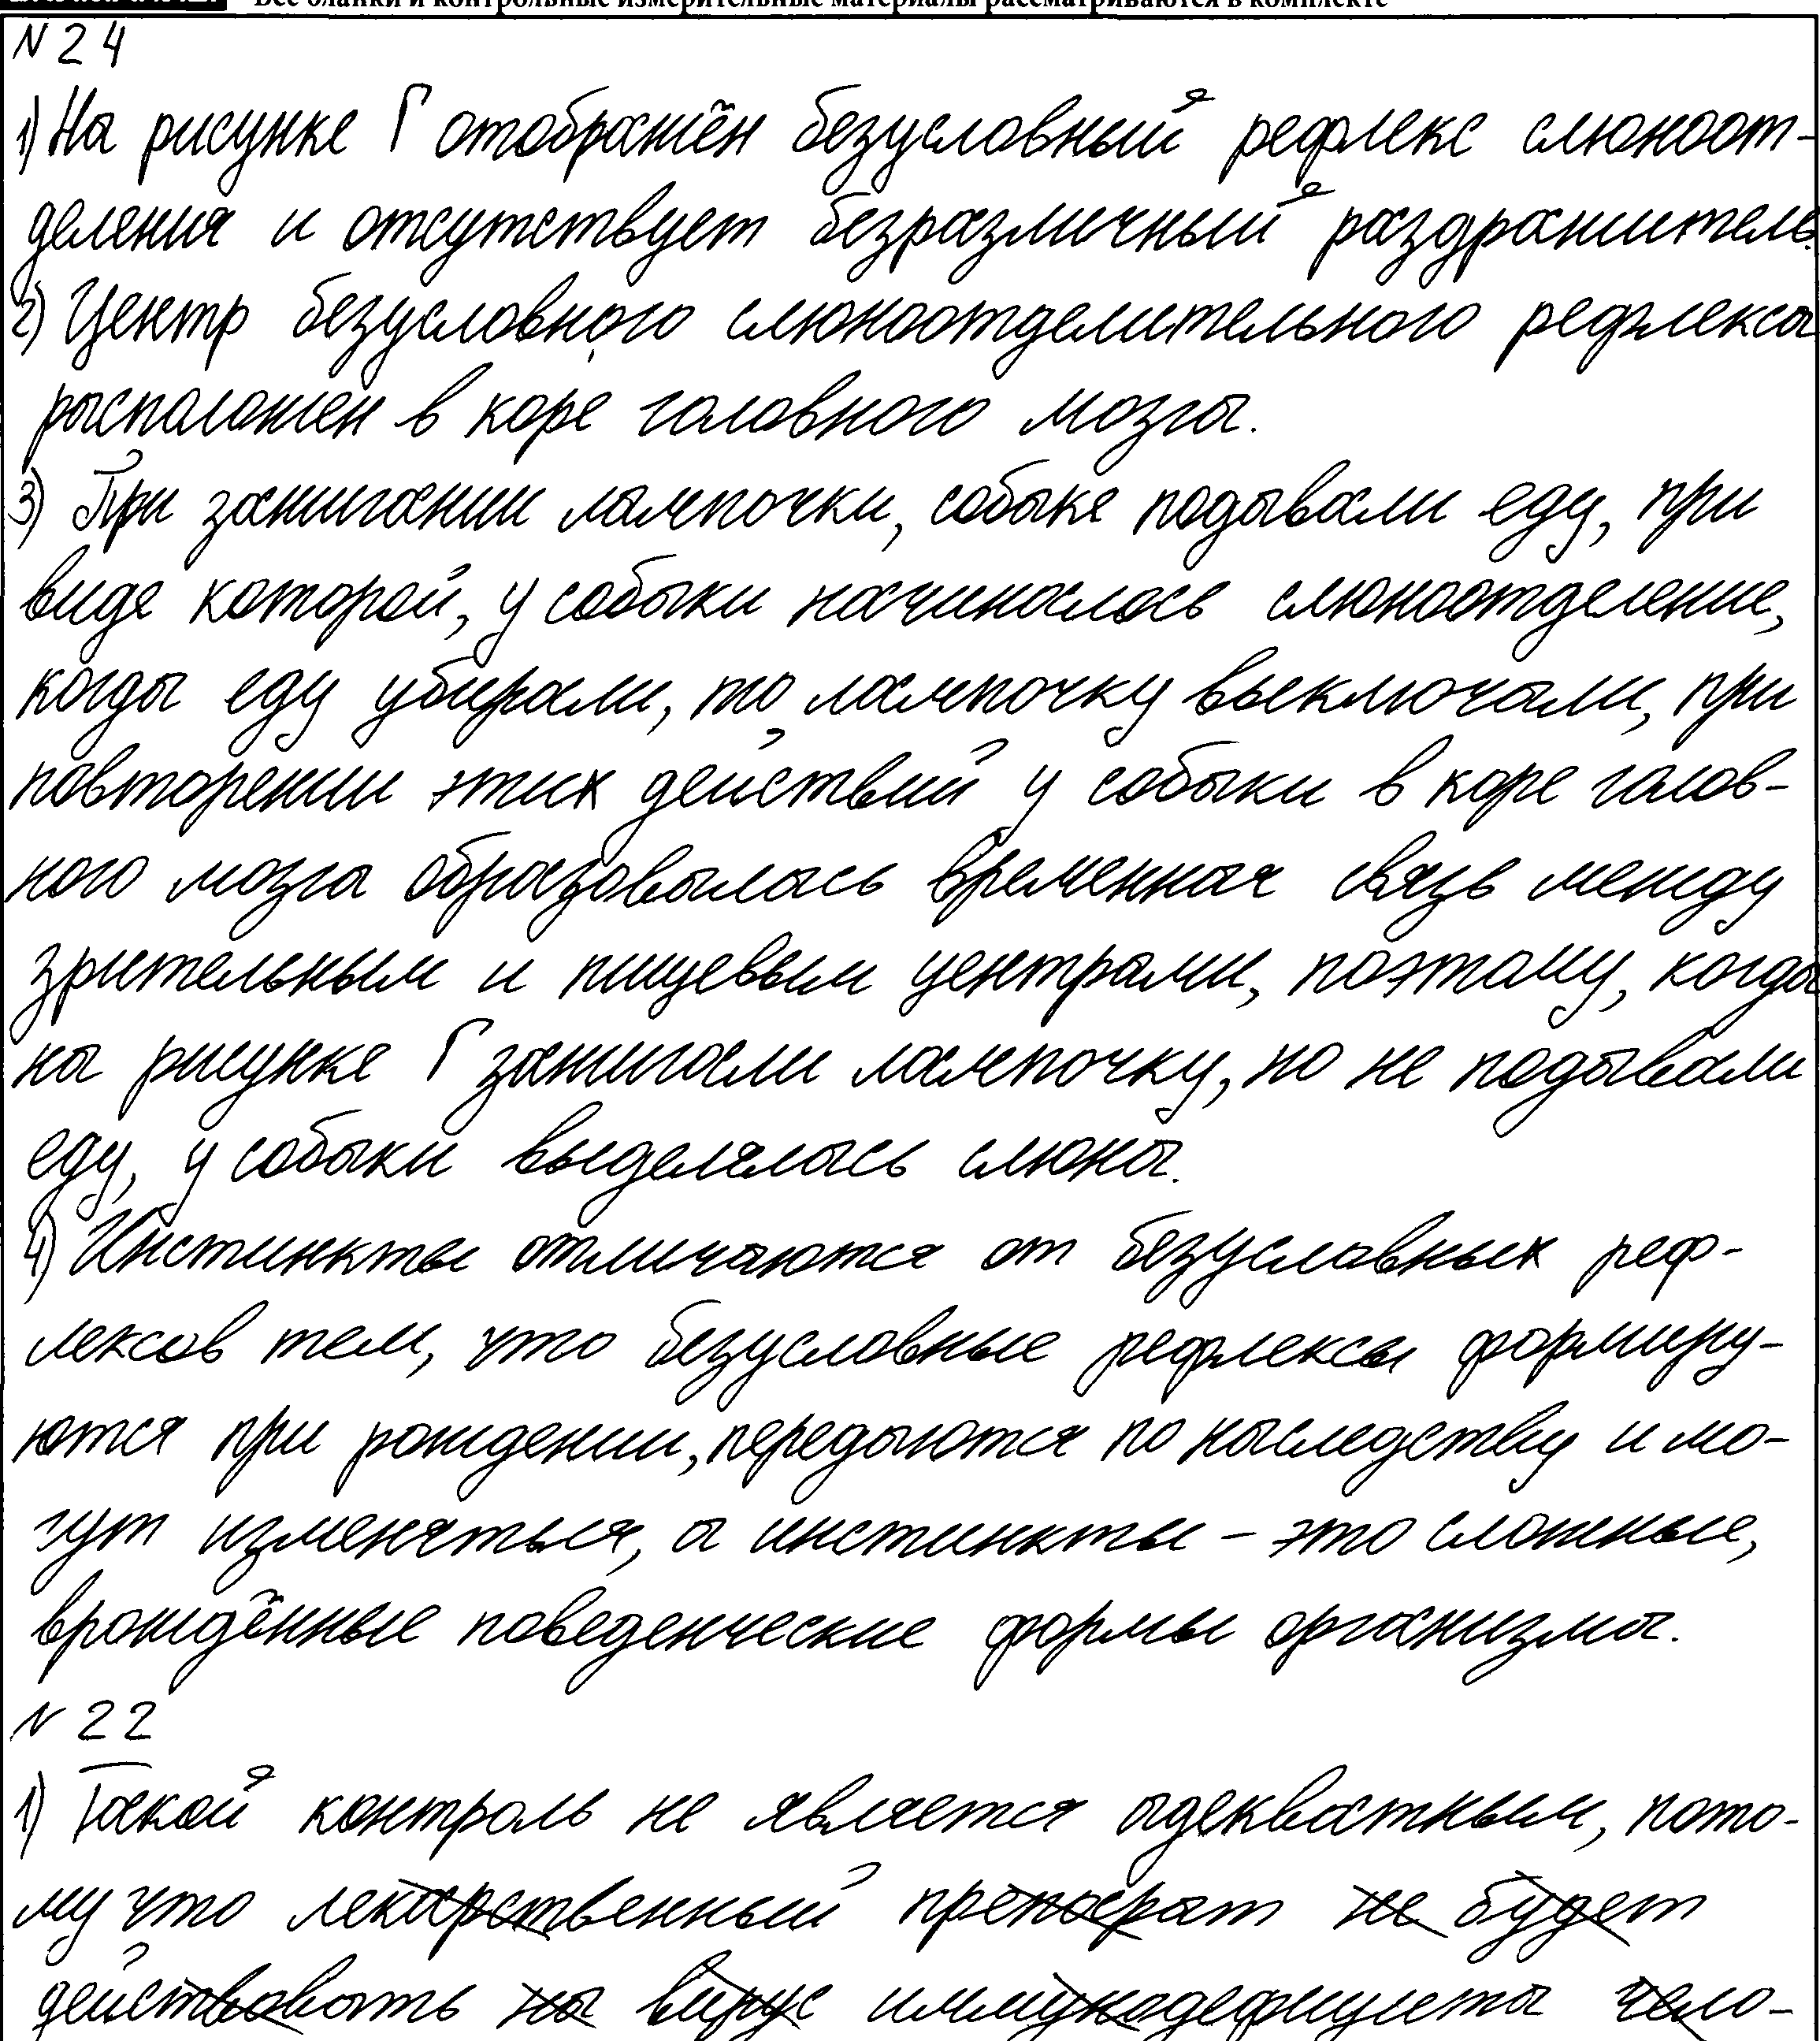 Все бланки и контрольные измерительные материалы рассматриваются в комплекте
N 24
1) На рисунке Г отображён безусловный рефлекс слюноот-
деления и отсутствует безразличный раздражитель.
2) Центр безусловного слюноотделительного рефлекса
расположен в коре головного мозга.
3) При зажигании лампочки, собаке подавали еду, при
виде которой, у собаки начиналось слюноотделение,
когда еду убирали, то лампочку выключали, при
повторении этих действий у собаки в коре голов-
ного мозга образовалась временная связь между
зрительным и пищевым центрами, поэтому, когда
на рисунке Г зажигали лампочку, но не подавали
еду, у собаки выделялась слюна.
4) Инстинкты отличаются от безусловных реф-
лексов тем, что безусловные рефлексы формиру-
ются при рождении, передаются по наследству и мо-
гут изменяться, а инстинкты – это сложные,
врождённые поведенческие формы организма.
N 22
1) Такой контроль не является адекватным, пото-
му что лекарственный препарат не будет
действовать на вирус иммунодефицита чело-